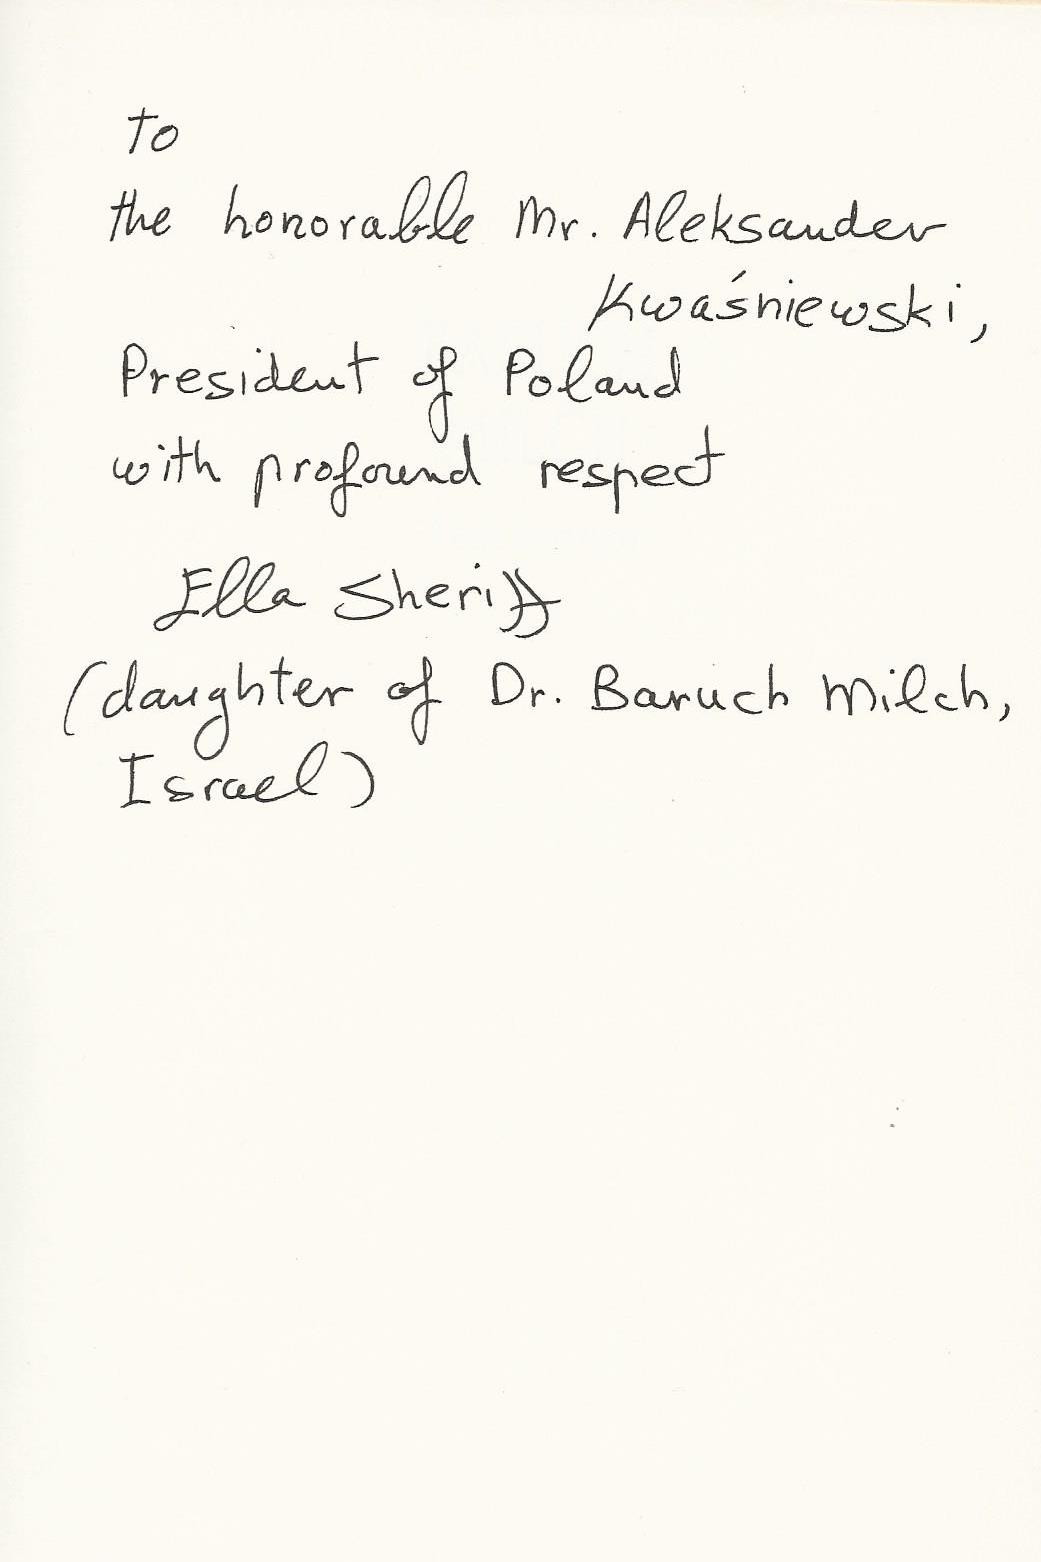 To
the honorable Mr. Aleksander
Kwaśniewski,
President of Poland
with profound respect
Ella Sheriff
(daughter of Dr. Baruch Milch,
Israel)